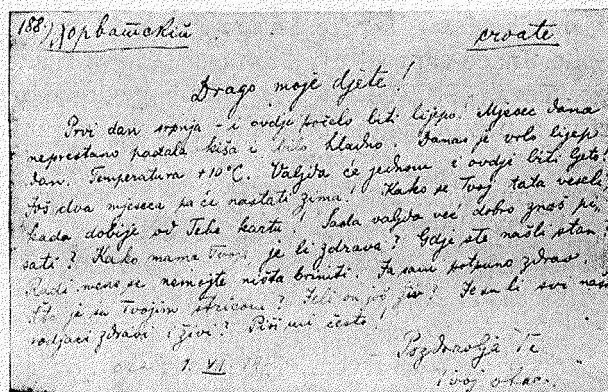 188. Хорватский croate
Drago moje djete!
Prvi dan srpnja - i ovdje počelo biti lijepo! Mjesec dana
neprestano padala kiša i bilo hladno. Danas je vrlo lijep
dan. Temperatura +10°C. Valjda će jednom i ovdje biti ljeto!
Još dva mjeseca pa će nastati zima! Kako se Tvoj tata veseli
kada dobije od Tebe kartu! Sada valjda već dobro znaš pi-
sati? Kako mama Tvoja je li zdrava? Gdje ste našli stan?
Radi mene se nemojte ništa briniti. Ja sam potpuno zdrav.
Što je sa Tvojim stricom? Jeli on još živ? Jesu li svi naši
rodjaci zdravi i živi? Piši mi često!
1. VI
Pozdravlja Te
Tvoj otac.